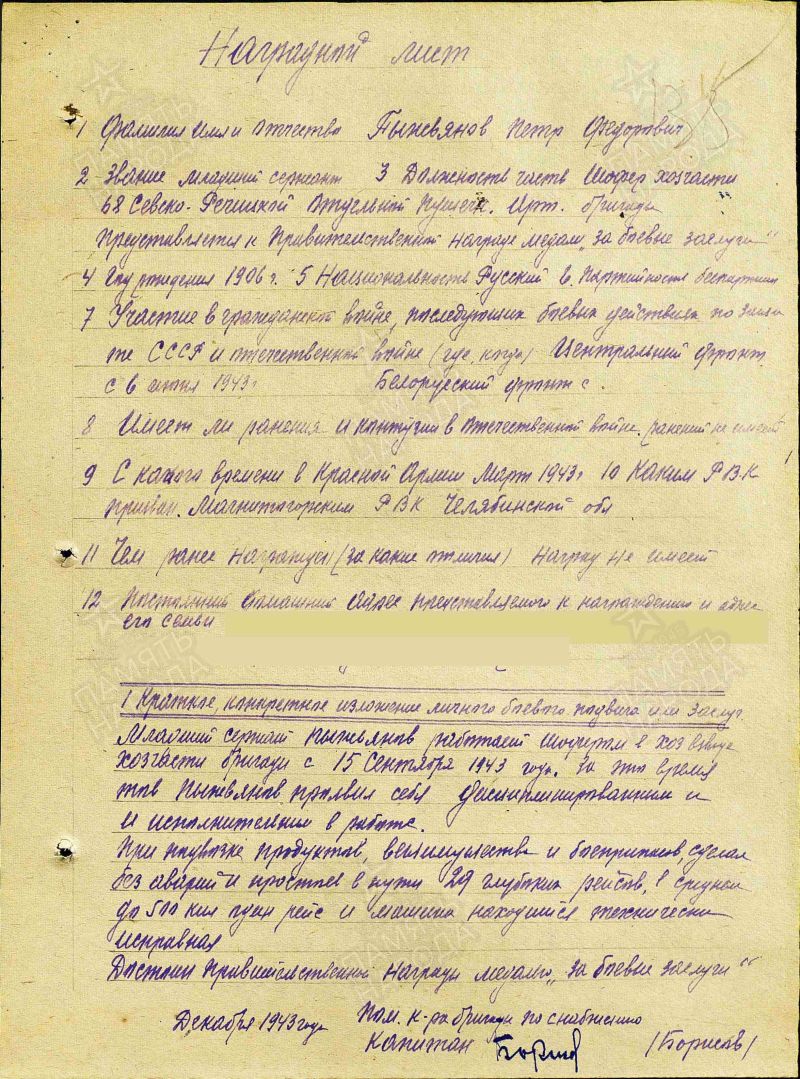 Наградной лист
1 Фамилия Имя и Отчество Пыжвянов Петр Федорович
2 Звание младший сержант 3 Должность часть Шофер хозчасти
68 Севско-Речицкой Отдельной Пушечн. Арт. бригады
Представляется к Правительственной Награде медаль „за боевые заслуги“
4 Год рождения 1906 г. 5 Национальность Русский 6. Партийность беспартийн
7 Участие в гражданской войне, последующих боевых действиях по защи
те СССР и отечественной войне (где, когда) Центральный фронт
с 6 1943 г Белорусский фронт с.
8 Имеет ли ранения и контузии в Отечественной войне. ранений не имеет
9 С какого времени в Красной Армии Март 1943 г 10 Каким РВК
призван. Магнитогорским РВК Челябинской обл
11 Чем ранее награжден (за какие отличия) Наград не имеет
12 Постоянный домашний адрес представляемого к награждению и адрес
его семьи
1 Краткое, конкретное изложение личного боевого подвига или заслуг
Младший сержант Пыжвянов работает шофером в хоз взводе
хозчасти бригады с 15 Сентября 1943 года. За это время
тов Пыжвянов проявил себя дисциплинированным и
и исполнительным в работе.
При подвозке продуктов, вещимущества и боеприпасов, сделал
без аварий и простоев в пути 29 глубоких рейсов, в среднем
до 500 клм один рейс и машина находится технически
исправная
Достоин Правительственной Награды медалью „за боевые заслуги“
Декабря 1943 года Пом. к-ра бригады по снабжению
Капитан (Борисов)
ПАМЯТЬ НАРОДА